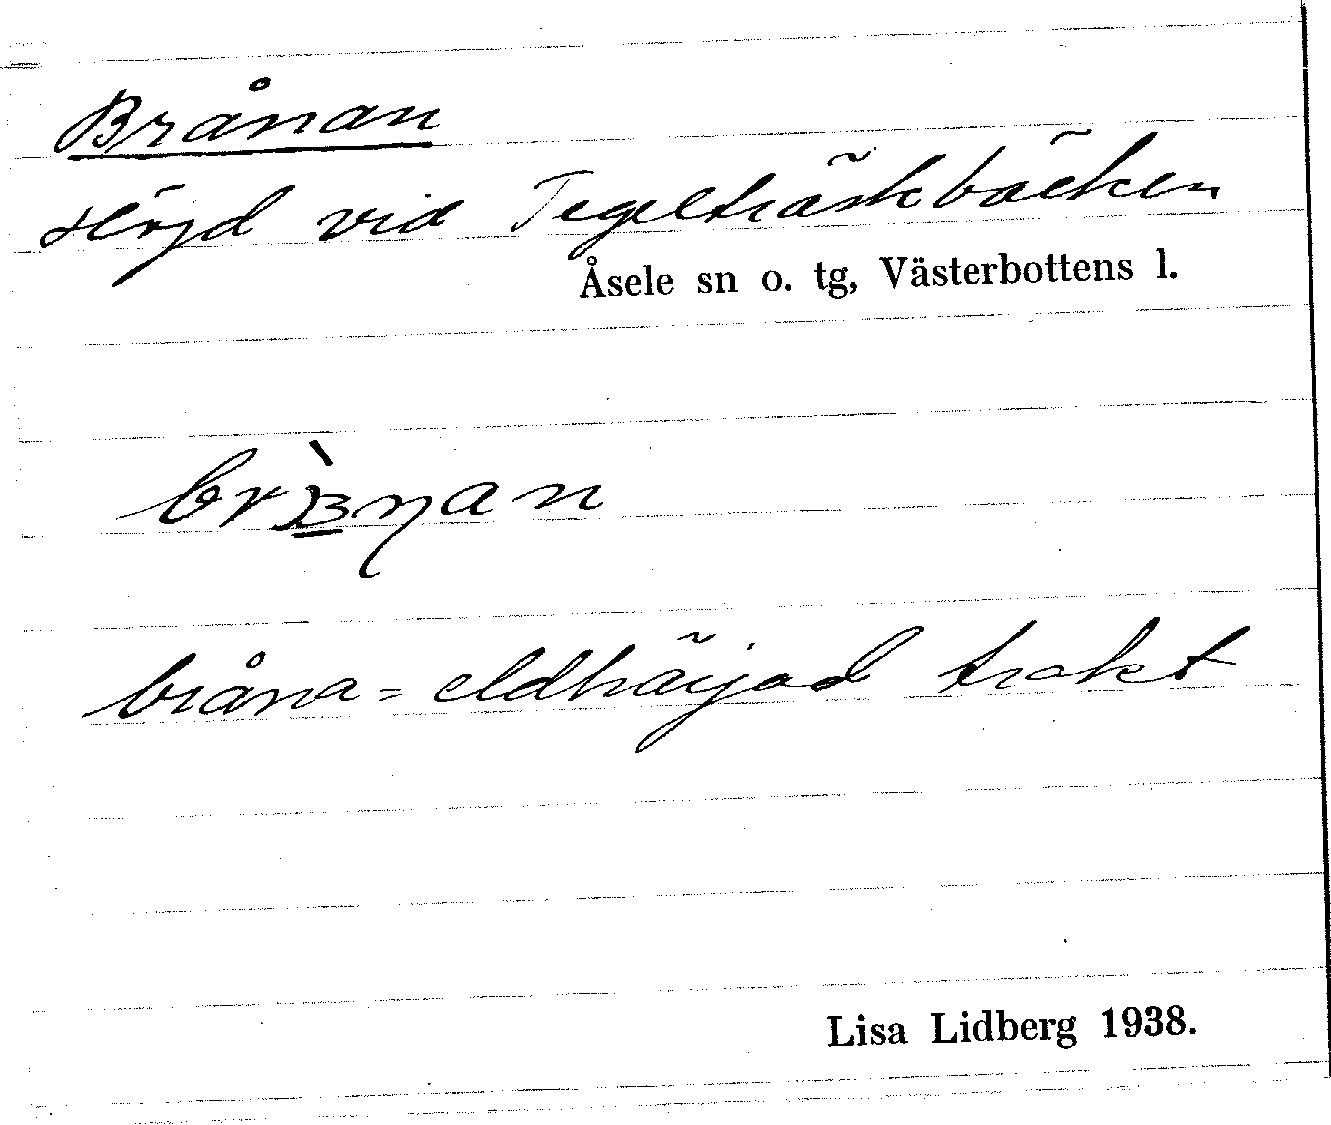 Brånan
Höjd vid Tegelträskbäcken
Åsele sn o. tg, Västerbottens l.
bråna = eldhärjad trakt
Lisa Lidberg 1938.